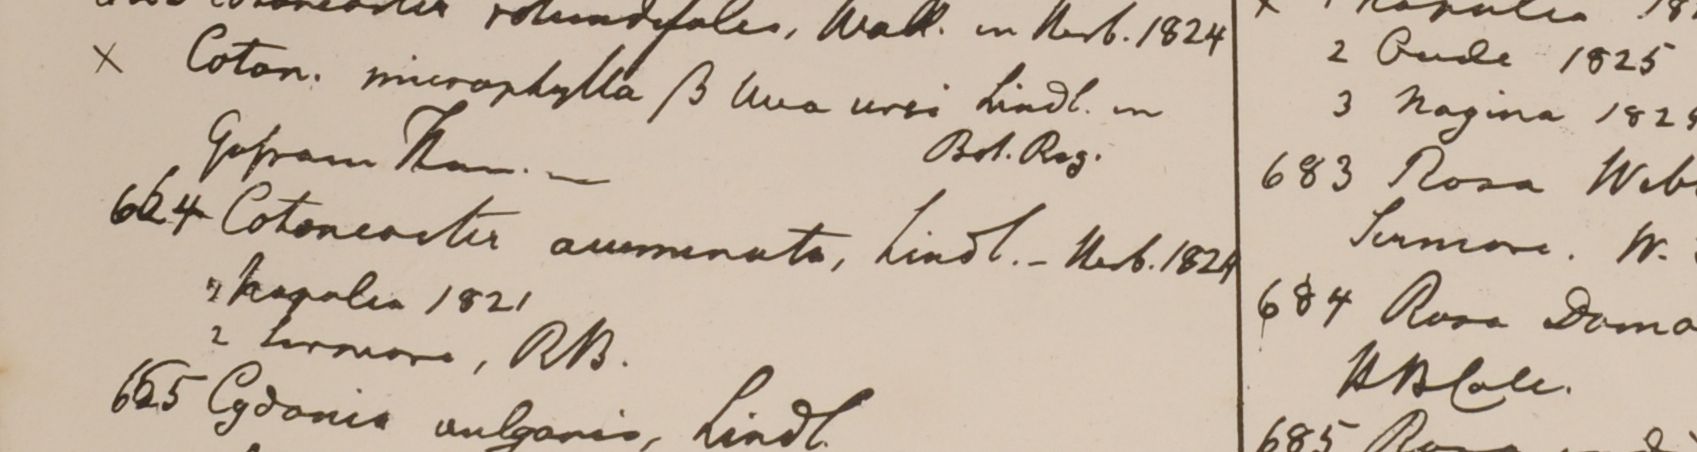 Cotoneaster rotundifolia, Wall. in Herb. 1824
x Coton. microphylla β Uva ursi Lindl. in
Bot. Reg.
Gossam Than. —
664 Cotoneaster acuminata, Lindl. - Herb. 1824
1 Napalia 1821
2 Sirmore, RB.
665 Cydonia vulgaris, Lindl.
x 1 Napalia 18
2 Oude 1825
3 Nagina 182
683 Rosa Web
Sirmore. W.
684 Rosa Dama
HBCole.
685 Rosa